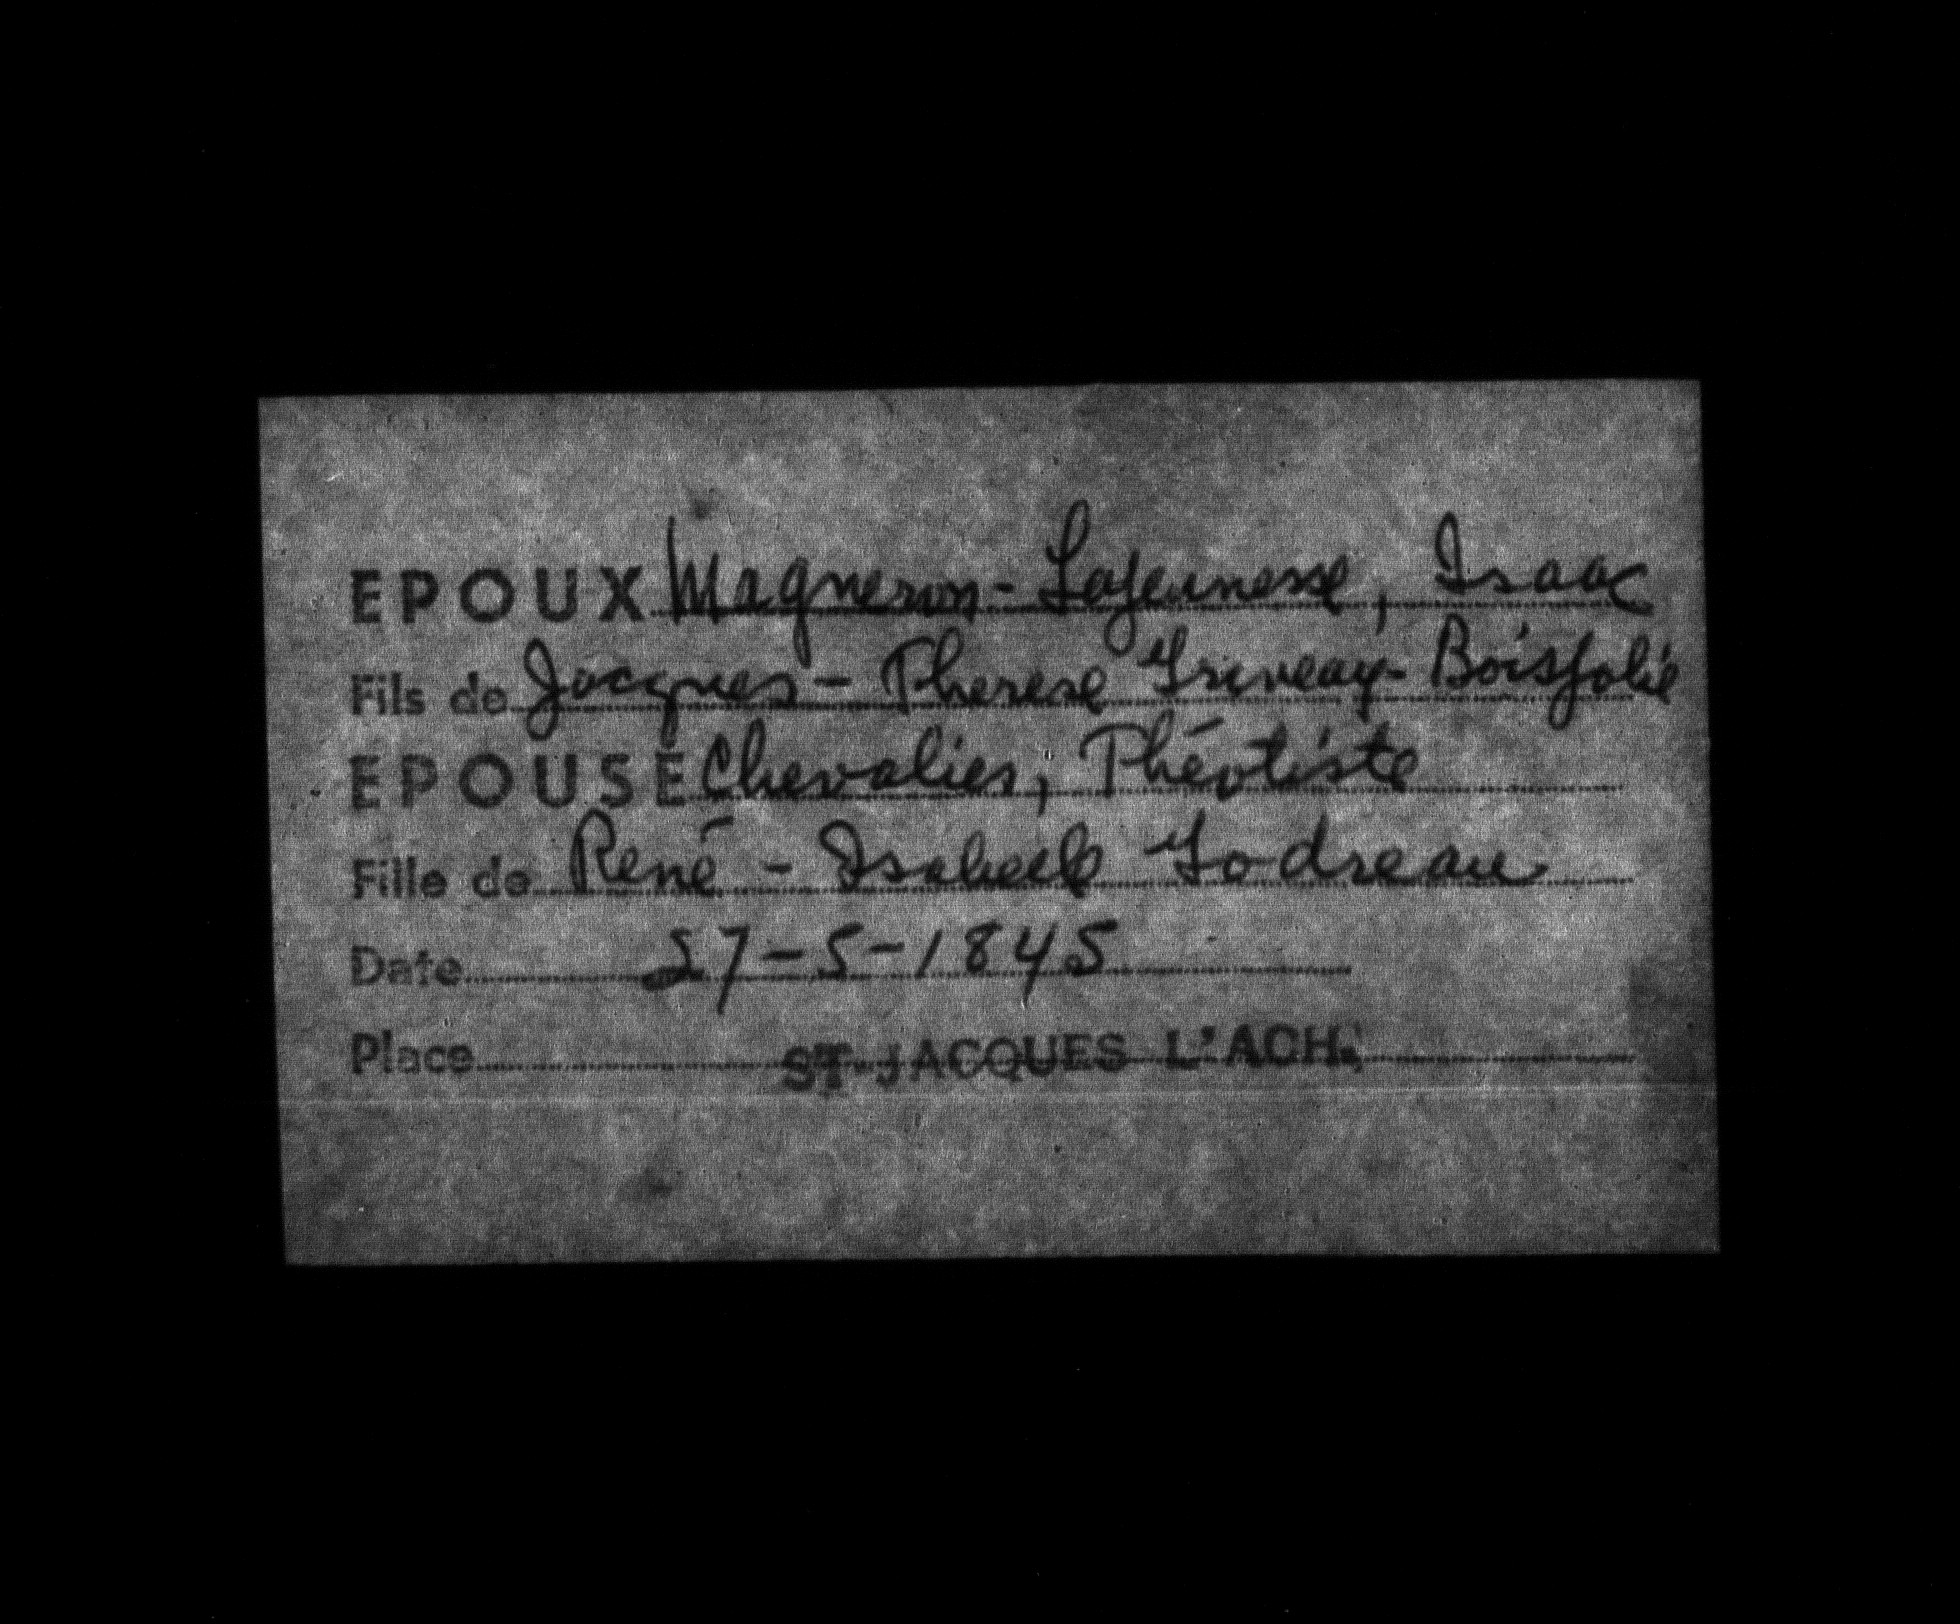 EPOUX Magneron-Lajeunesse, Isaac
Fils de Jacques - Therese Griveau-Boisjolie
EPOUSE Chevalier, Théotiste
Fille de René - Isabelle Godreau
Date 27-5-1845
Place ST-JACQUES L'ACH.